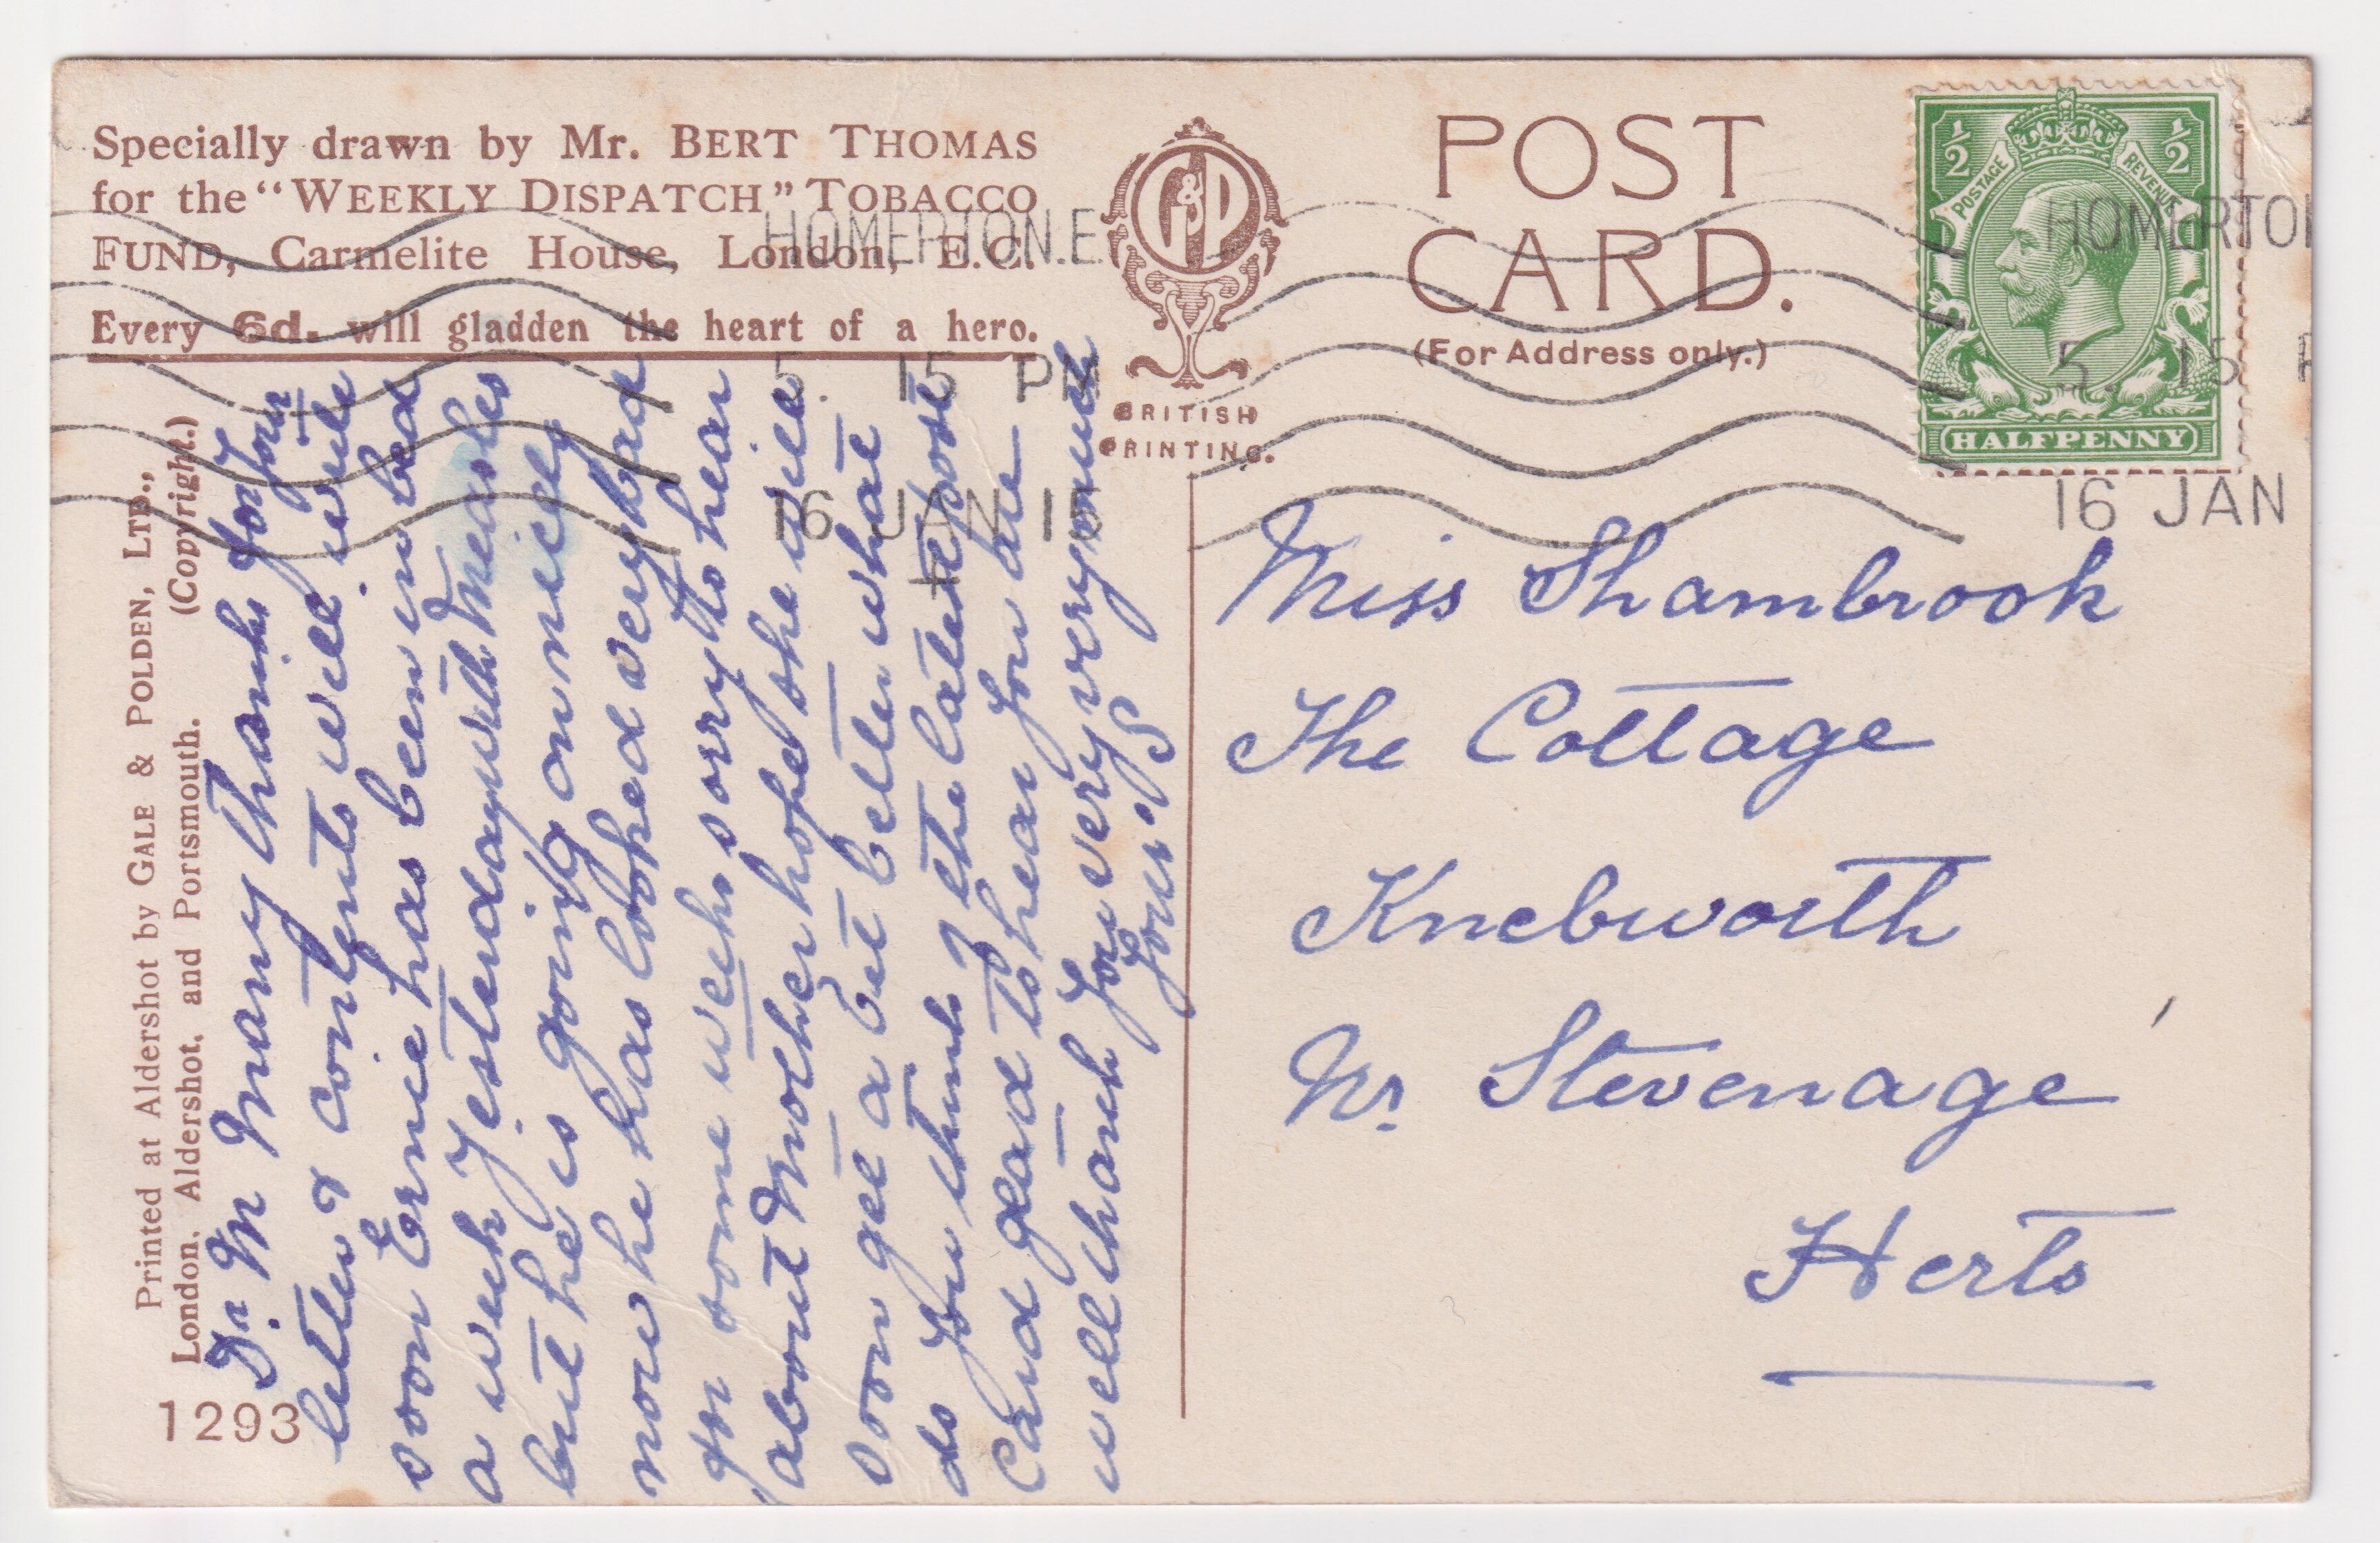 Specially drawn by Mr. BERT THOMAS
for the "WEEKLY DISPATCH" TOBACCO
FUND, Carmelite House, London, E.C.
Every 6d. will gladden the heart of a hero.
G&P
BRITISH
PRINTING.
POST
CARD.
(For Address only.)
½ ½
POSTAGE REVENUE
HALFPENNY
HOMERTON.E
5. 15 PM
16 JAN 15
HOMERTON
5. 15 P
16 JAN
Printed at Aldershot by GALE & POLDEN, LTD.,
London, Aldershot, and Portsmouth. (Copyright.)
1293
Dr M Many thanks for your
letter & contents will write
soon Ernie has been in bed
a week yesterday with Measles
but he is going on nicely
now he has looked very bad
for some weeks sorry to hear
about Mother hope she will
soon get a bit better what
do you think of the latest post
card glad to hear you are
well thank you very very much
Yours
Miss Shambrook
The Cottage
Knebworth
Nr Stevenage
Herts